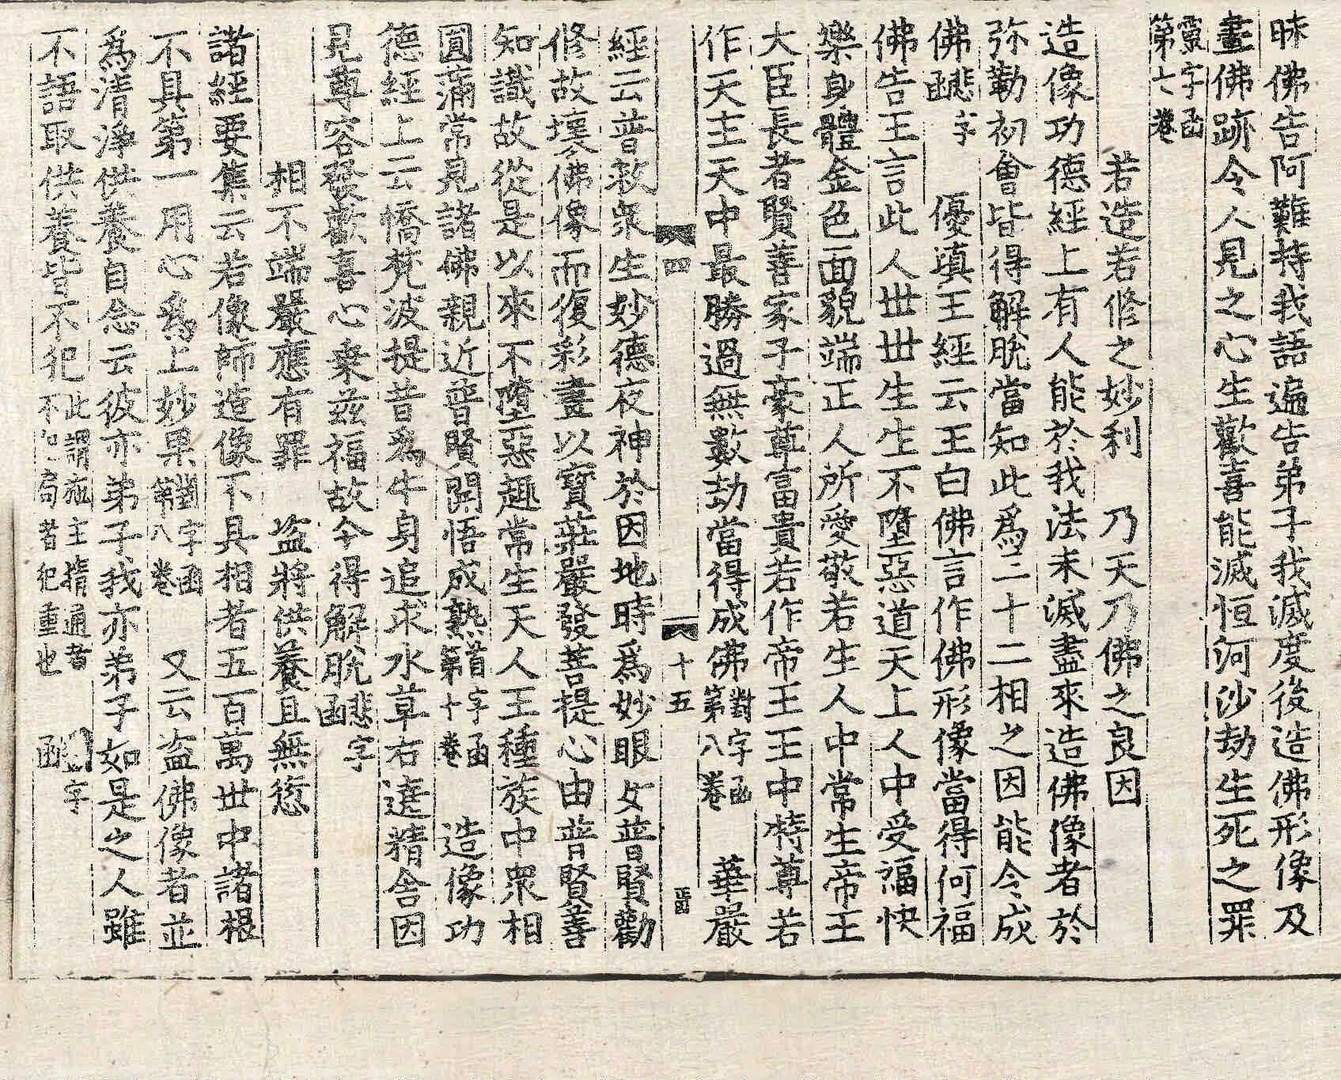 昧佛告阿難持我語遍告弟子我滅度後造佛形像及
畫佛跡令人見之心生歡喜能滅恒河沙劫生死之罪
靈字函
第七卷
若造若修之妙利 乃天乃佛之良因
造像功德經上有人能於我法未滅盡來造佛像者於
弥勒初會皆得解脫當知此爲三十二相之因能令成
佛悲字函 優塡王經云王白佛言作佛形像當得何福
佛告王言此人世世生生不墮惡道天上人中受福快
樂身體金色面貌端正人所愛敬若生人中常生帝王
大臣長者賢善家子豪尊富貴若作帝王王中特尊若
作天主天中最勝過無數劫當得成佛對字函第八卷 華嚴
四 十五
經云普救衆生妙德夜神於因地時爲妙眼女普賢勸
修故壞佛像而復彩畫以寶莊嚴發菩提心由普賢善
知識故從是以來不墮惡趣常生天人王種族中衆相
圓滿常見諸佛親近普賢開悟成熟首字函第十卷 造像功
德經上云憍梵波提昔爲牛身追求水草右遶精舍因
見尊容發歡喜心乗茲福故今得解脫悲字函
相不端嚴應有罪 盜將供養且無愆
諸經要集云若像師造像不具相者五百萬世中諸根
不具第一用心爲上妙果對字函第八卷 又云盜佛像者並
爲清淨供養自念云彼亦弟子我亦弟子如是之人雖
不語取供養皆不犯此謂施主情通者不知局者犯重也 字函